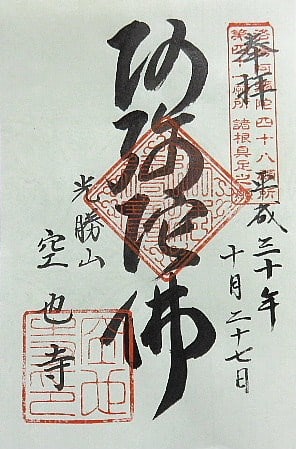 奉拝
四十八願所
諸根具足之願
平成三十年
十月二十七日
阿弥陀佛
光勝山
空也寺